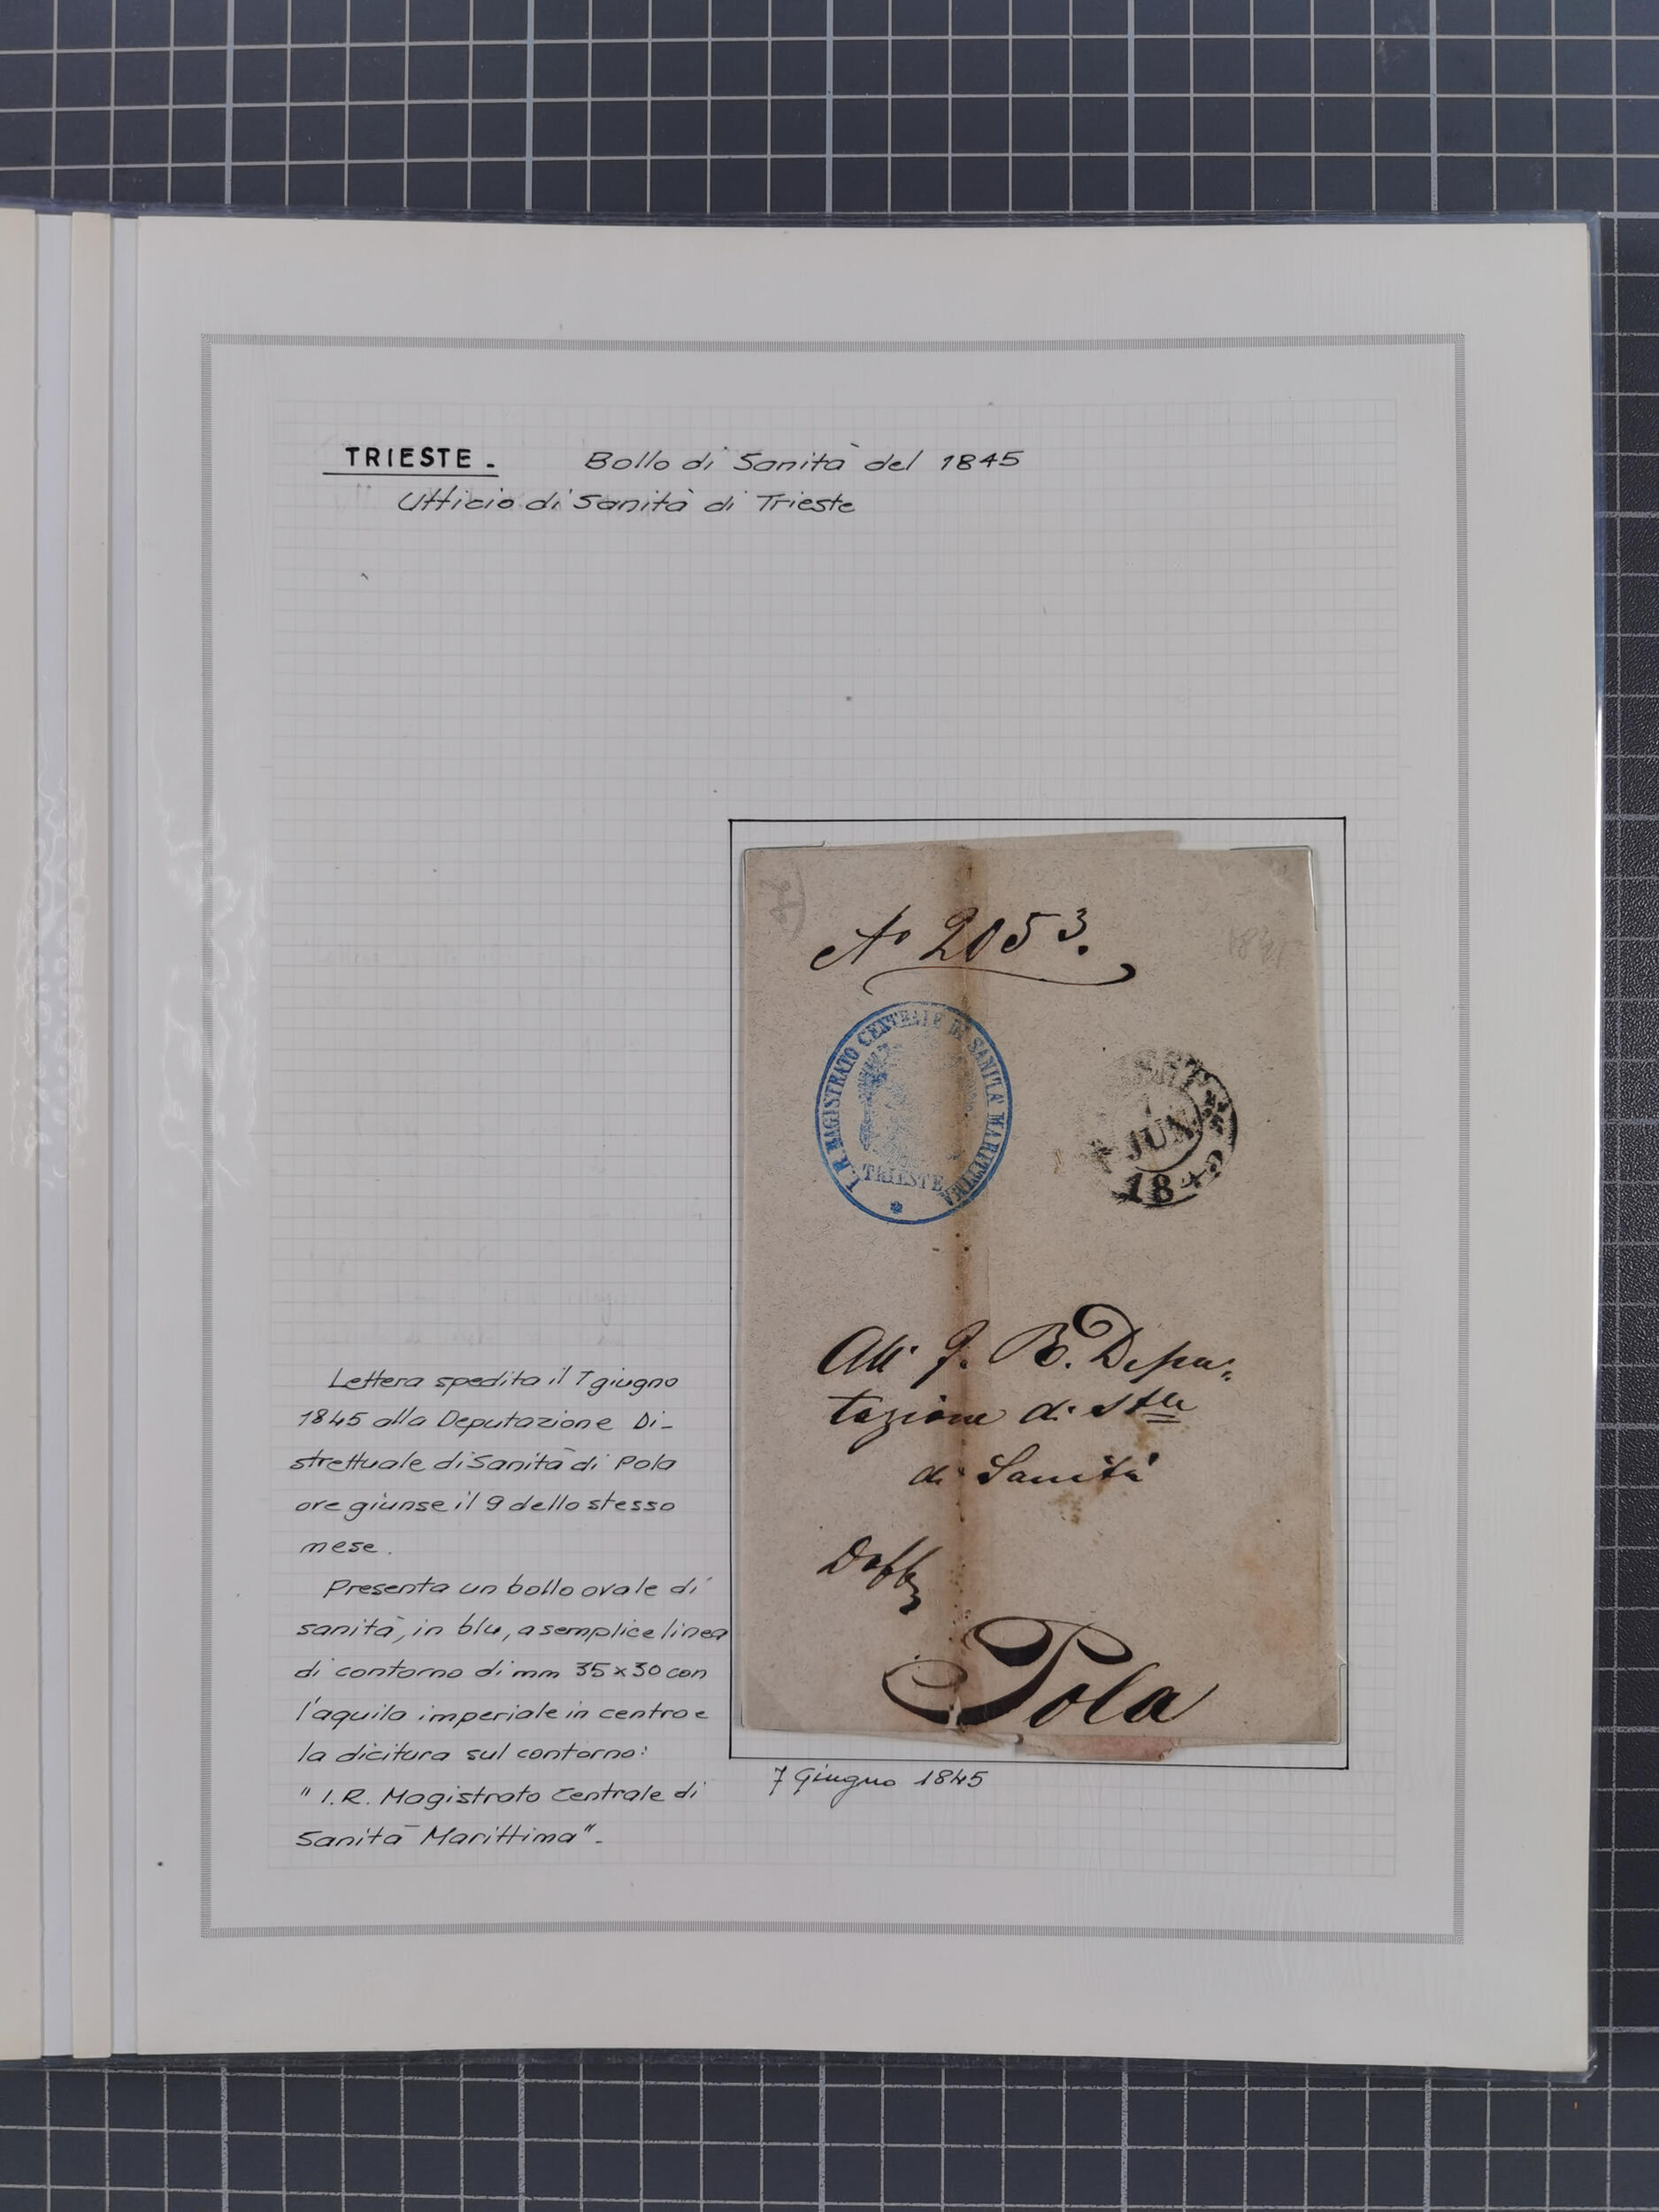 TRIESTE - Bollo di Sanità del 1845
Ufficio di Sanità di Trieste
No 2053.
I. R. MAGISTRATO CENTRALE DI SANITÀ MARITTIMA
TRIESTE
JUN
18
All' I. R. Depu-
tazione di
di Sanità
Pola
7 Giugno 1845
Lettera spedita il 7 giugno
1845 alla Deputazione Di-
strettuale di Sanità di Pola
ore giunse il 9 dello stesso
mese.
Presenta un bollo ovale di
sanità, in blu, a semplice linea
di contorno di mm 35x30 con
l'aquila imperiale in centro e
la dicitura sul contorno:
" I.R. Magistrato Centrale di
Sanità Marittima".